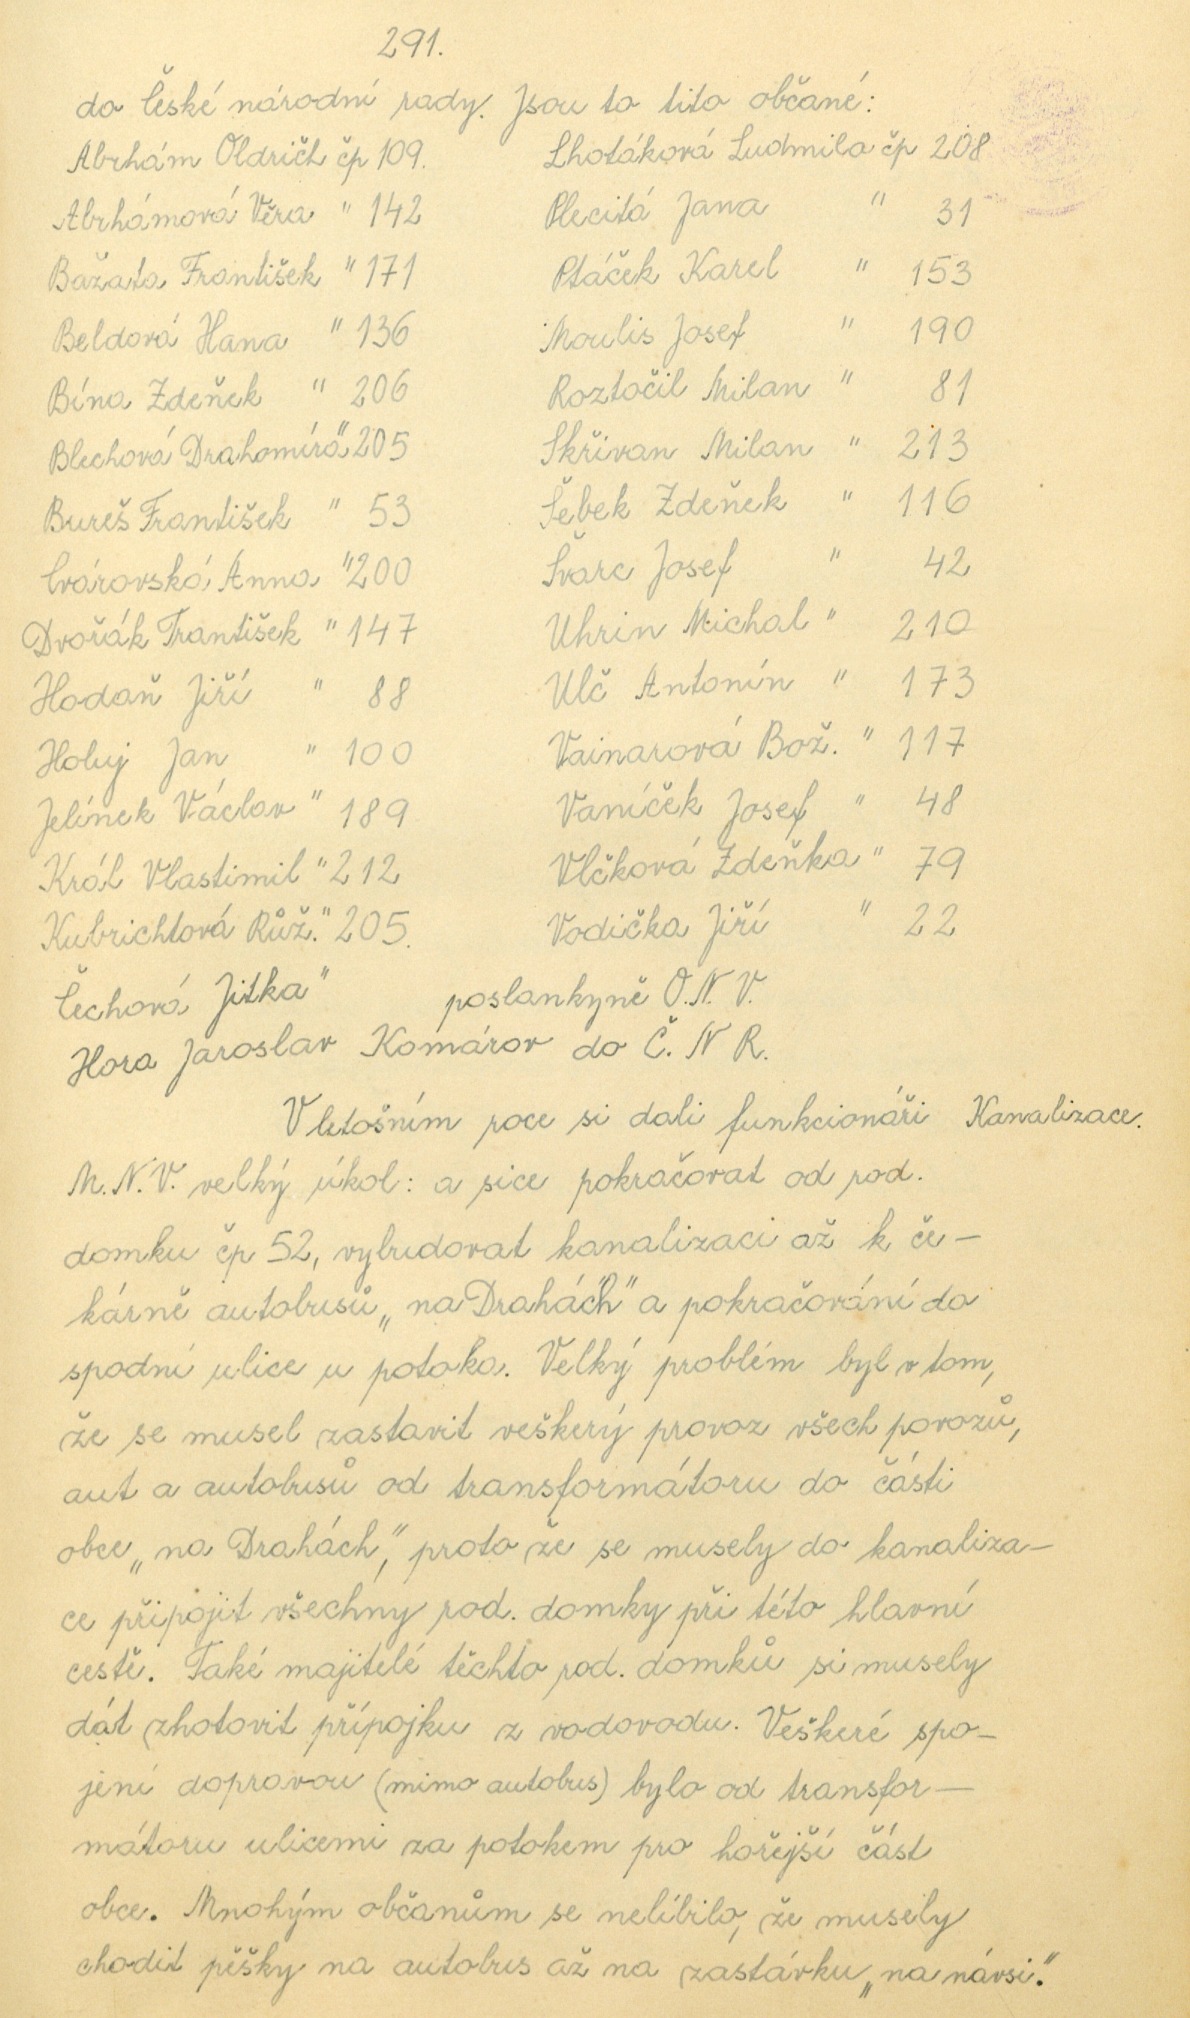 291.
do České národní rady. Jsou to tito občané:
Abrhám Oldřich čp 109. Lhotáková Ludmila čp 208
Abrhámová Věra " 142 Plecitá Jana " 31
Bažata František " 171 Ptáček Karel " 153
Beldová Hana " 136 Moulis Josef " 190
Bína Zdeňek " 206 Roztočil Milan " 81
Blechová Drahomíra " 205 Skřivan Milan " 213
Bureš František " 53 Šebek Zdeňek " 116
Cvárovská Anna " 200 Švarc Josef " 42
Dvořák František " 147 Uhrin Michal " 210
Hodaň Jiří " 88 Ulč Antonín " 173
Holuj Jan " 100 Vainarová Bož. " 117
Jelínek Václav " 189 Vaníček Josef " 48
Král Vlastimil " 212 Vlčková Zdeňka " 79
Kubrichtová Růž. " 205. Vodička Jiří " 22
Čechová Jitka " poslankyně O.N.V.
Hora Jaroslav Komárov do Č. N R.
V letošním roce si dali funkcionáři Kanalizace.
M.N.V. velký úkol: a sice pokračovat od rod.
domku čp 52, vybudovat kanalizaci až k če-
kárně autobusů „na Drahách" a pokračování do
spodní ulice u potoka. Velký problém byl v tom,
že se musel zastavit veškerý provoz všech povozů,
aut a autobusů od transformátoru do části
obce „na Drahách", proto že se musely do kanaliza-
ce připojit všechny rod. domky při této hlavní
cestě. Také majitelé těchto rod. domků si musely
dát zhotovit přípojku z vodovodu. Veškeré spo-
jení dopravou (mimo autobus) bylo od transfor-
mátoru ulicemi za potokem pro hořejší část
obce. Mnohým občanům se nelíbilo, že musely
chodit pěšky na autobus až na zastávku „na návsi."